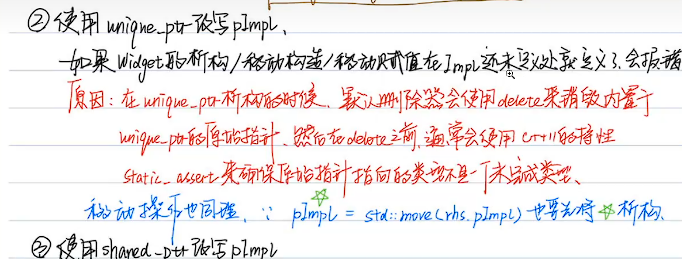 ② 使用 unique_ptr 改写 pImpl、
如果 Widget的析构/移动构造/移动赋值在Impl还未定义处就定义了,会报错
原因:在unique_ptr析构的时候、默认删除器会使用delete来销毁内置于
unique_ptr的原始指针、然后在delete之前,通常会使用C++11的特性
static_assert来确保原始指针指向的类型不是一个未完成类型、
移动操作也同理、∵ pImpl = std::move(rhs.pImpl)也要先将☆析构、
③ 使用shared_ptr改写pImpl